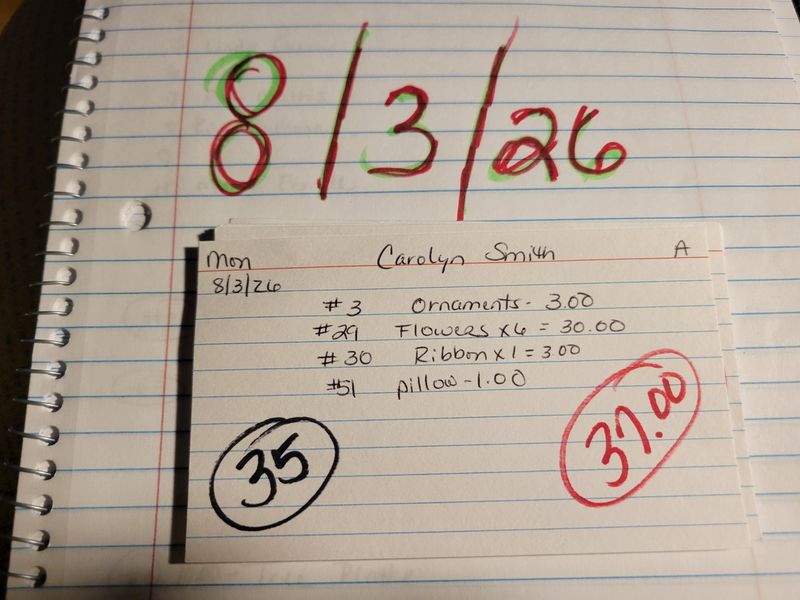 8/3/26
Mon Carolyn Smith A
8/3/26
#3 Ornaments - 3.00
#29 Flowers x6 = 30.00
#30 Ribbon x1 = 3.00
#51 pillow - 1.00
35
37.00